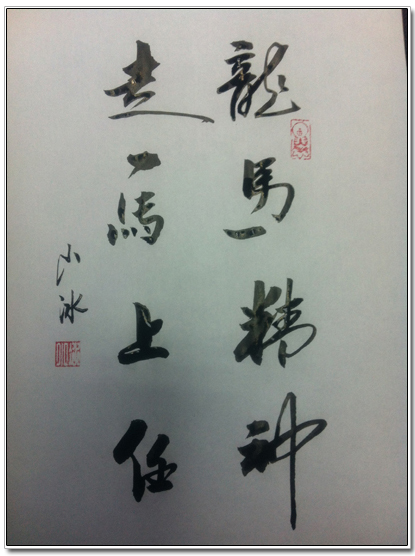 龍馬精神
走馬上任
小冰